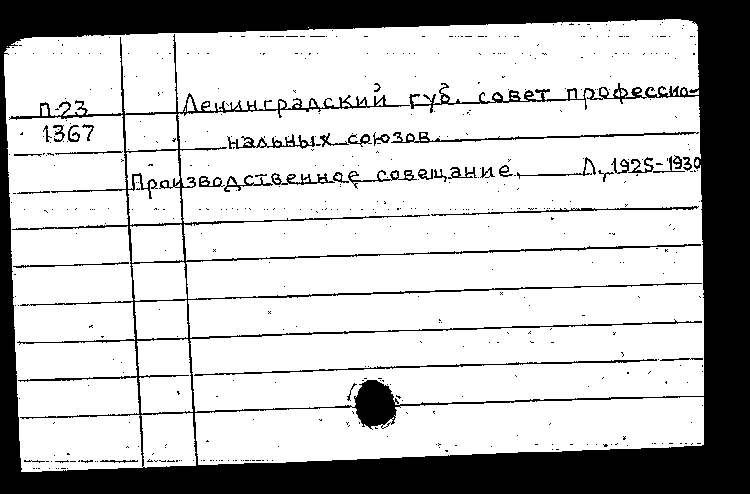 П23 Ленинградский губ. совет профессио-
1367 нальных союзов.
Производственное совещание. Л., 1925-1930